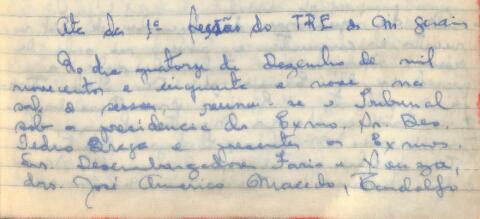 Ata da 1ª Sessão do TRE de M. Gerais
No dia quatorze de Dezembro de mil
novecentos e cinquenta e nove na
sala de sessões, reuniu-se o Tribunal
sob a presidencia do Exmo. Sr. Des.
Pedro Braga e presentes os Exmos.
Srs. Desembargadores Faria e Souza,
drs. José Americo Macedo,